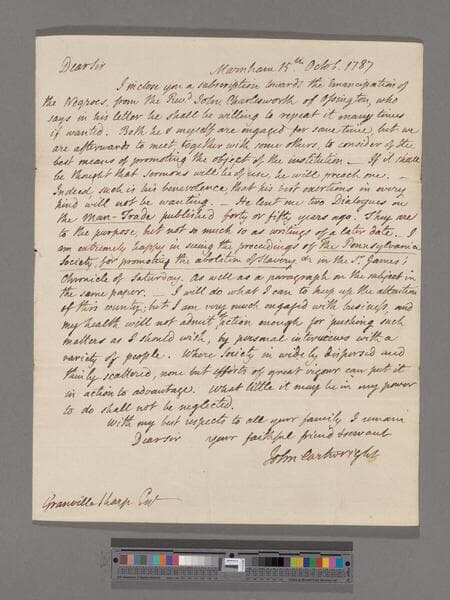 Dear Sir Marnham 15th Octob. 1787
I inclose you a subscription towards the Emancipation of
the Negroes, from the Revd. John Charlesworth of Ossington, who
says in his letter he shall be willing to repeat it many times
if wanted. Both he & myself are engaged for some time, but we
are afterwards to meet together with some others, to consider of the
best means of promoting the object of the institution — If it shall
be thought that Sermons will be of use, he will preach one. —
Indeed such is his benevolence that his best exertions in every
kind will not be wanting. — He lent me two Dialogues on
the Man-Trade published forty or fifty years ago. They are
to the purpose, but not so much so as writings of a later date. I
am extremely happy in seeing the proceedings of the Pennsylvania
Society, for promoting the abolition of slavery, &c in the St. James's
Chronicle of Saturday, as well as a paragraph on the subject in
the same paper. I will do what I can to keep up the attention
of this county; but I am very much engaged with business, and
my health will not admit action enough for pushing such
matters as I should wish, by personal interviews with a
variety of people. Where Society is widely dispersed and
thinly scattered, none but efforts of great vigour can put it
in action to advantage. What little it may be in my power
to do shall not be neglected.
With my best respects to all your family I remain
Dear Sir your faithful friend & servant
John Cartwright
Granville Sharp Esqr